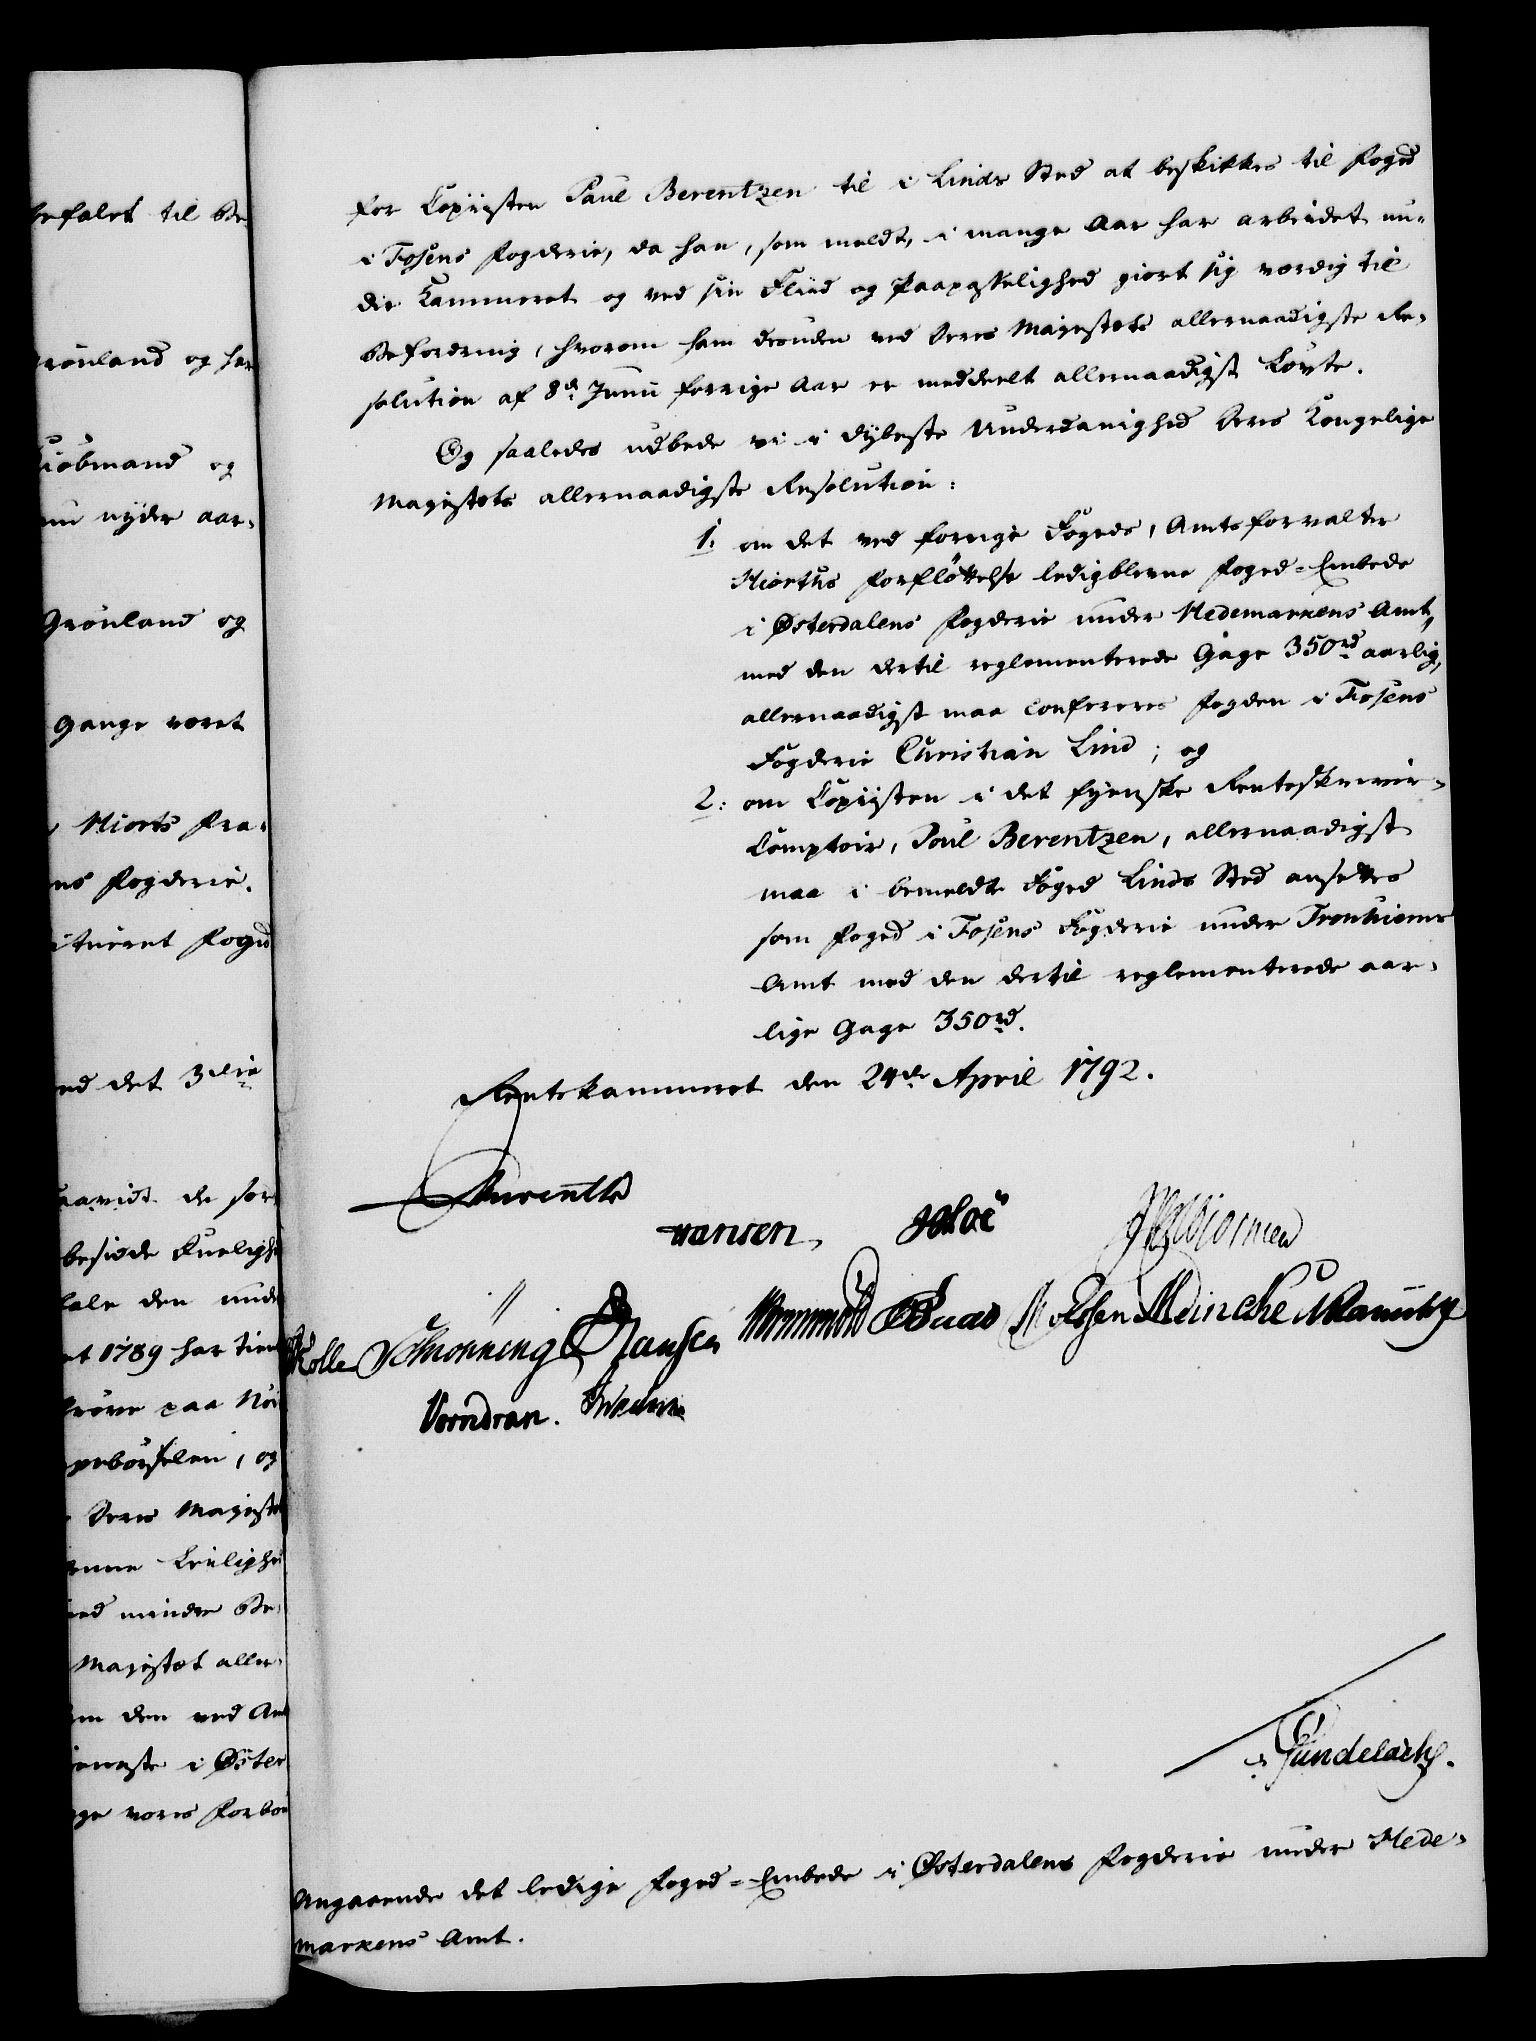 befalet til Be-
rønland og har
Kiøbmand og
nu nyder aar-
Grønland og
Gange været
Hiorts Fra-
ns Fogderie.
itueret Foged
ed det 3die
saavidt de for
besidde Duelighed
tale den unde
et 1789 har tient
Prøve paa
og
Deres Majestet
denne Leilighed
ved mindre Be-
Majestet aller-
den ved Amt
ieneste i Øster
ge vores Forbøn
for Copiisten Paul Berentzen til i Linds Sted at beskikkes til Foged
i Fosens Fogderie, da han, som meldt, i mange Aar har arbeidet un-
der Kammeret og ved sin Fliid og Paapasselighed giort sig værdig til
Befordring, hvorom ham desuden ved Deres Majestets allernaadigste Re-
solution af 8de Junii forrige Aar er meddeelt allernaadigst Løvte.
Og saaledes udbede vi i dybeste Underdanighed Deres Kongelige
Majestets allernaadigste Resolution:
1. om det ved forrige Fogeds, Amtsforvalter
Hiorths Forflöttelse ledigblevne Foged-Embede
i Østerdalens Fogderie under Hedemarkens Amt,
med den dertil reglementerede Gage 350rd aarlig,
allernaadigst maa confereres Fogden i Fosens
Fogderie Christian Lind; og
2. om Copiisten i det fyenske Renteskriver-
Comptoir, Poul Berentzen, allernaadigst
maa i bemeldte Foged Linds Sted ansettes
som Foged i Fosens Fogderie under Tronhiems
Amt med den dertil reglementerede aar-
lige Gage 350rd.
Rentekammeret den 24de April 1792.
Hansen
Schrønning Hansen Wormskiold Buas M Essen Meincke
Vorndran.
Gundelach.
Angaaende det ledige Foged-Embede i Østerdalens Fogderie under Hede-
markens Amt.